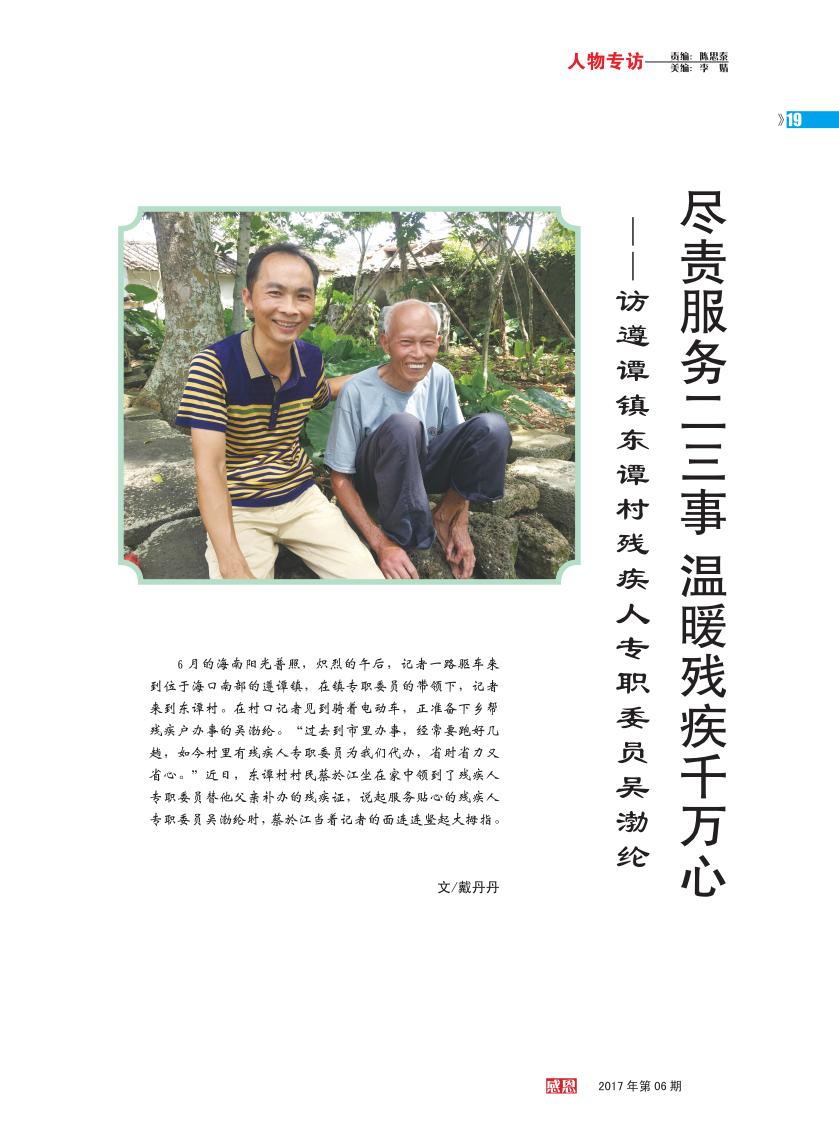 人物专访
责编：陈思泰
美编：李 婧
》19
尽责服务二三事 温暖残疾千万心
——访遵谭镇东谭村残疾人专职委员吴渤纶
6月的海南阳光普照，炽烈的午后，记者一路驱车来
到位于海口南部的遵谭镇，在镇专职委员的带领下，记者
来到东谭村。在村口记者见到骑着电动车，正准备下乡帮
残疾户办事的吴渤纶。“过去到市里办事，经常要跑好几
趟，如今村里有残疾人专职委员为我们代办，省时省力又
省心。”近日，东谭村村民蔡於江坐在家中领到了残疾人
专职委员替他父亲补办的残疾证，说起服务贴心的残疾人
专职委员吴渤纶时，蔡於江当着记者的面连连竖起大拇指。
文/戴丹丹
感恩 2017 年第 06 期